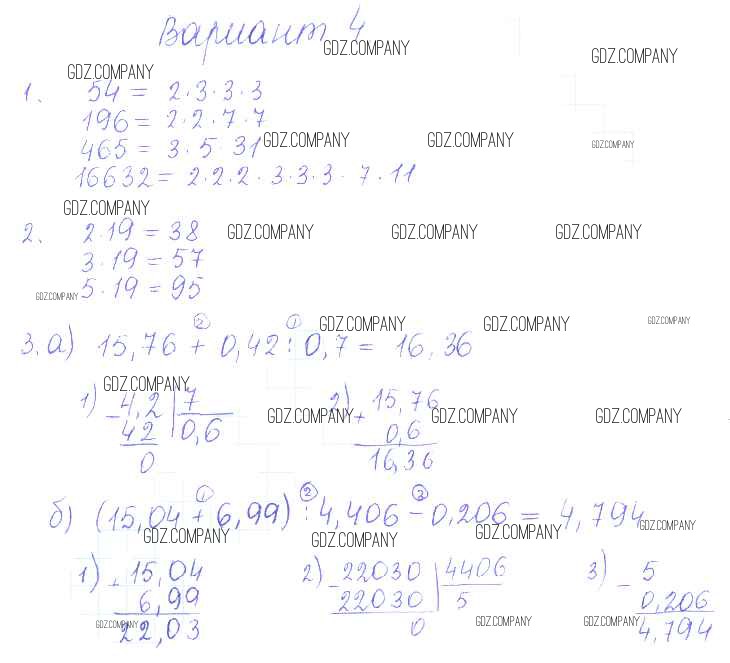 Вариант 4
GDZ.COMPANY GDZ.COMPANY
GDZ.COMPANY
1. 54 = 2·3·3·3
196 = 2·2·7·7
465 = 3·5·31 GDZ.COMPANY GDZ.COMPANY GDZ.COMPANY
16632 = 2·2·2·3·3·3·7·11
GDZ.COMPANY
2. 2·19 = 38 GDZ.COMPANY GDZ.COMPANY GDZ.COMPANY
3·19 = 57
GDZ.COMPANY 5·19 = 95
② ① GDZ.COMPANY GDZ.COMPANY GDZ.COMPANY
3. а) 15,76 + 0,42 : 0,7 = 16,36
GDZ.COMPANY
1) 4,2 | 7 2) 15,76
- 42 | 0,6 GDZ.COMPANY + 0,6 GDZ.COMPANY GDZ.COMPANY
0 16,36
① ② ③
б) (15,04 + 6,99) : 4,406 - 0,206 = 4,794 GDZ.COMPANY
GDZ.COMPANY GDZ.COMPANY GDZ.COMPANY
1) + 15,04 2) - 22030 | 4406 3) - 5
6,99 22030 | 5 0,206
GDZ.COMPANY 22,03 0 GDZ.COMPANY GDZ.COMPANY 4,794